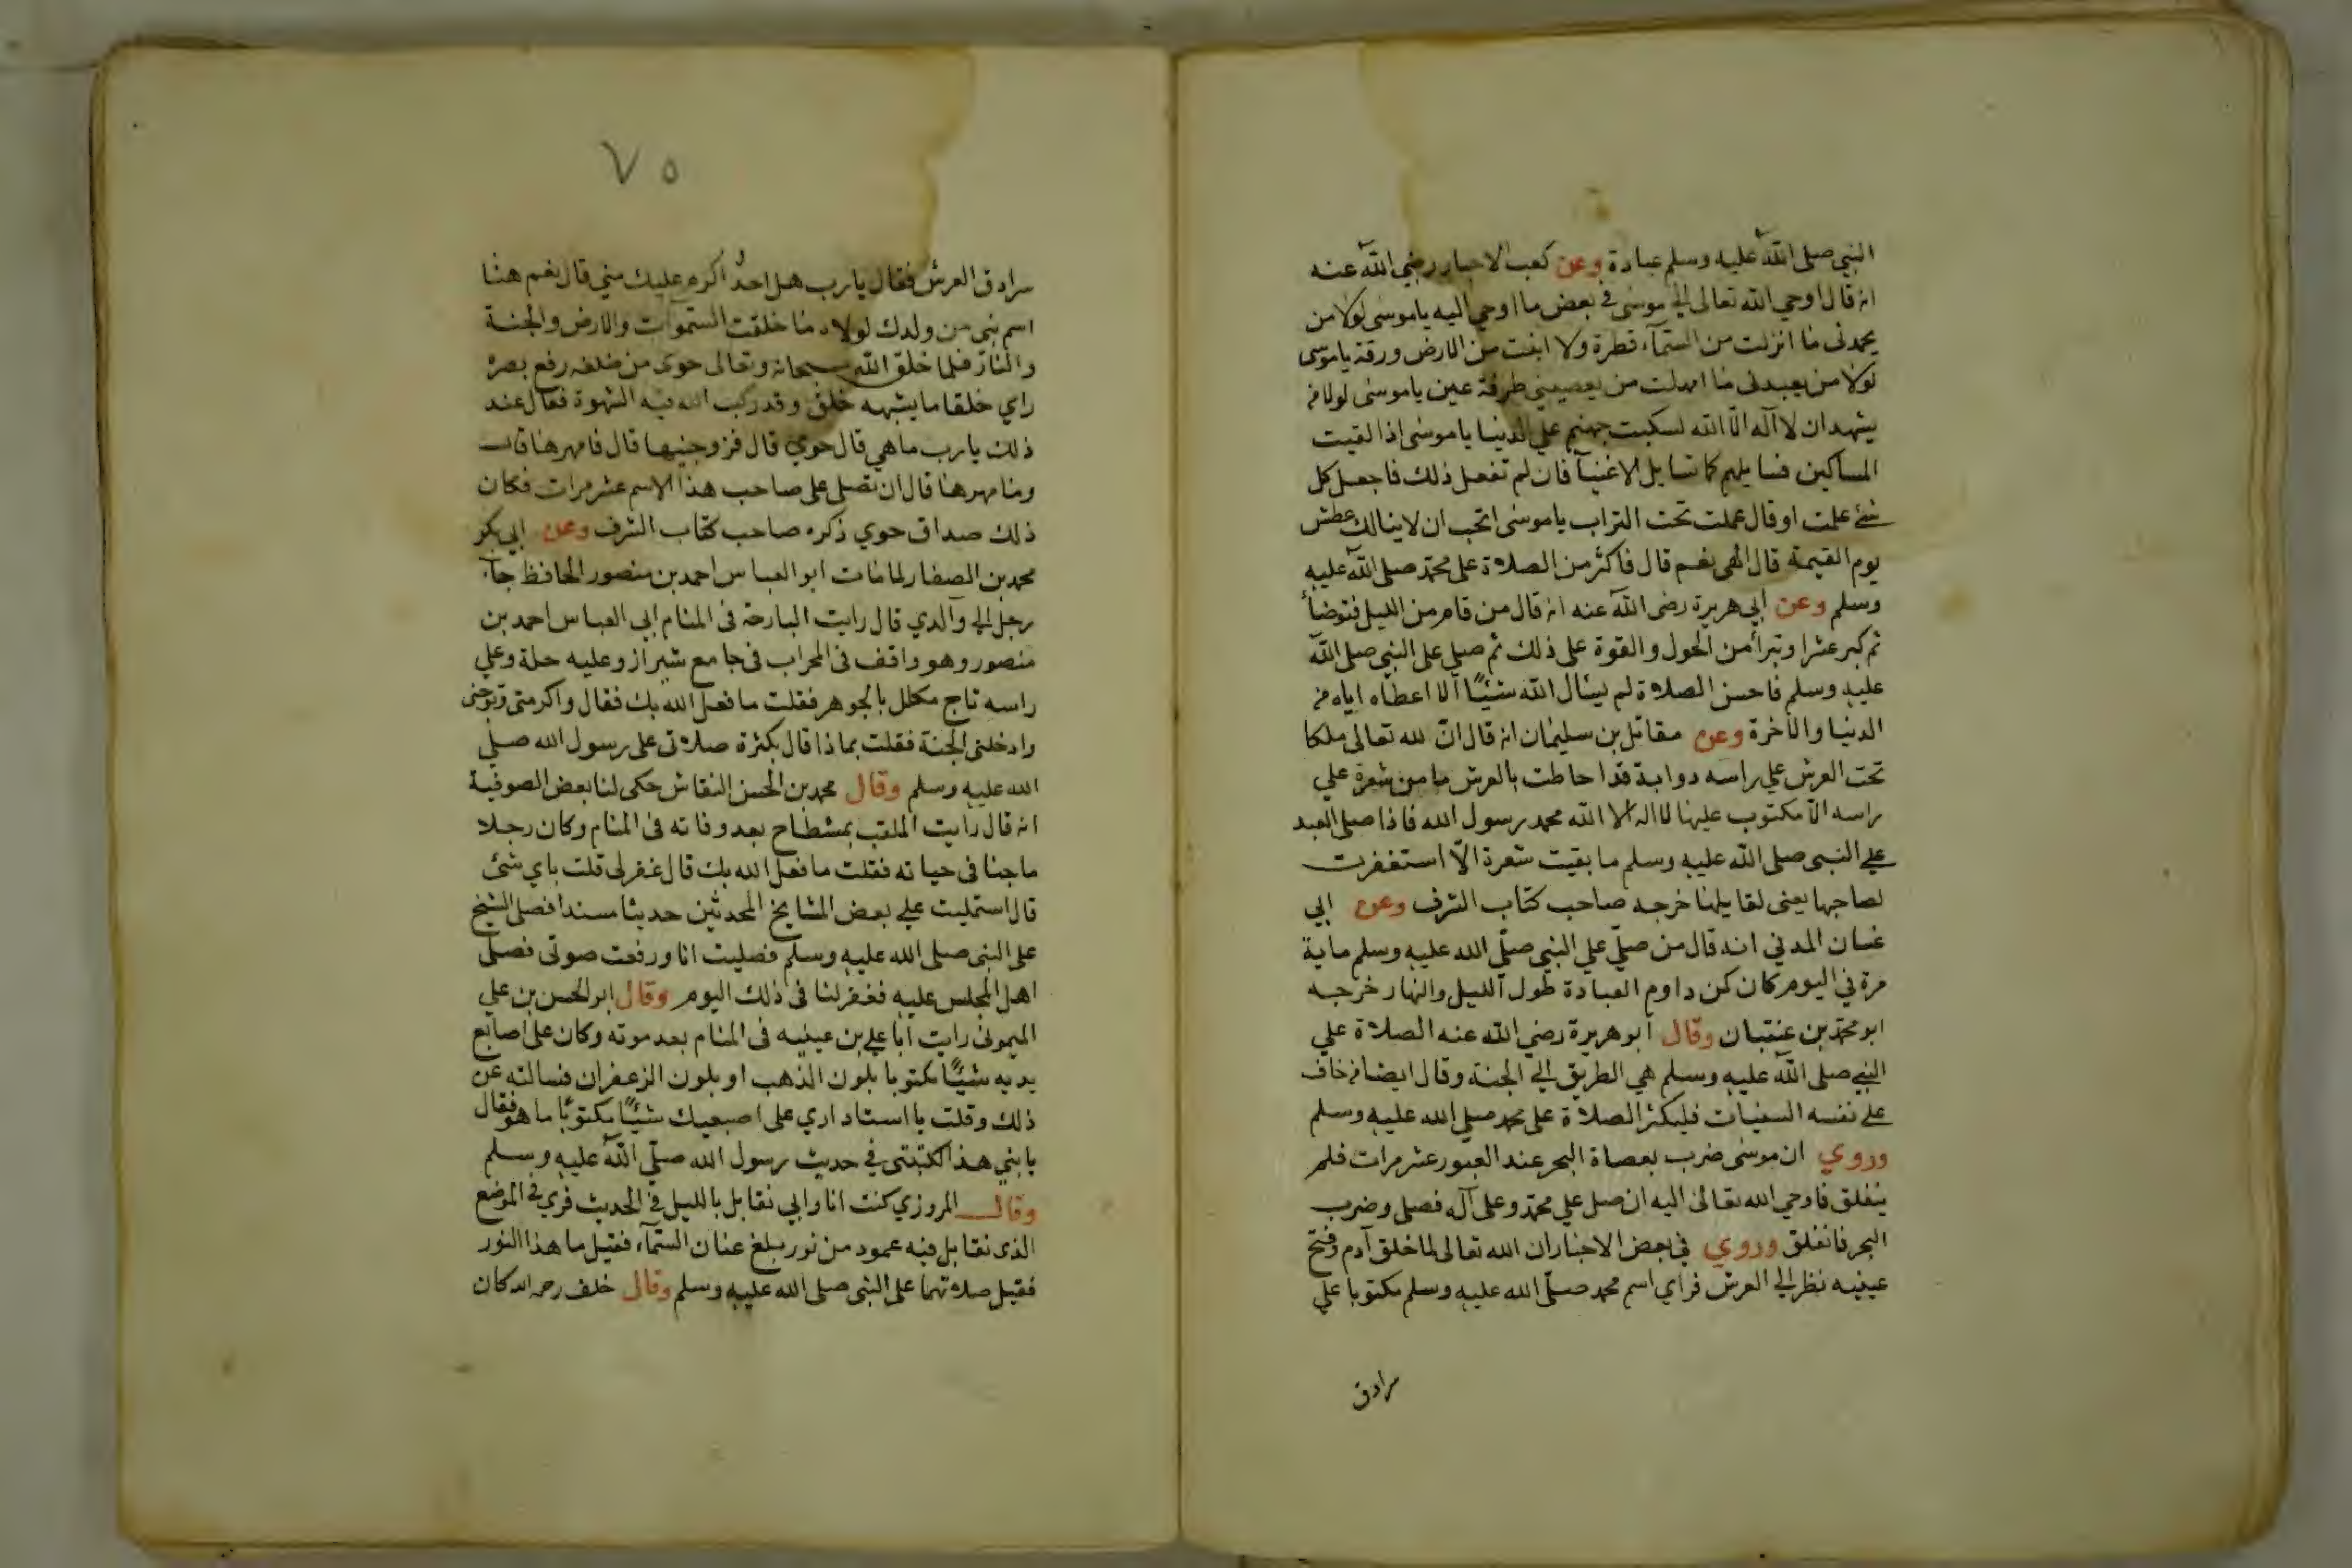 النبي صلى الله عليه وسلم عبادة وعن كعب الاحبار رضي الله عنه
انه قال اوحي الله تعالى الي موسى في بعض ما اوحي اليه ياموسى لولا من
يحمدنى ما انزلت من السمآء قطرة ولا انبت من الارض ورقة ياموسى
لولا من يعبدنى ما امهلت من يعصيني طرفة عين ياموسى لولا من
يشهد ان لا اله الا الله لسكبت جهنم علي الدنيا ياموسى اذا لقيت
المساكين فسايلهم كما تسايل الاغنيآ فان لم تفعل ذلك فاجعل كل
شئ علمت او قال عملت تحت التراب ياموسى اتحب ان لا ينالك عطش
يوم القيمة قال الهى نعم قال فاكثر من الصلاة على محمد صلى الله عليه
وسلم وعن ابي هريرة رضى الله عنه انه قال من قام من الليل فتوضأ
ثم كبر عشرا وتبرأ من الحول والقوة على ذلك ثم صلي على النبي صلى الله
عليه وسلم فاحسن الصلاة لم يسأل الله شيئًا الا اعطاه اياه من
الدنيا والاخرة وعن مقاتل بن سليمان انه قال ان لله تعالى ملكا
تحت العرش علي راسه دوابة قد احاطت بالعرش ما من شعرة علي
راسه الا مكتوب عليها لا اله الا الله محمد رسول الله فاذا صلى العبد
علي النبى صلى الله عليه وسلم ما بقيت شعرة الا استغفرت
لصاحبها يعنى لقايلها خرجه صاحب كتاب الشرف وعن ابي
غسان المدني انه قال من صلي علي النبي صلي الله عليه وسلم ماية
مرة في اليوم كان كمن داوم العبادة طول الليل والنهار خرجه
ابو محمد بن وقال ابو هريرة رضي الله عنه الصلاة علي
النبي صلى الله عليه وسلم هي الطريق الي الجنة وقال ايضا من خاف
على نفسه السيات فليكثر الصلاة على محمد صلي الله عليه وسلم
وروي ان موسى ضرب بعصاة البحر عند العبور عشر مرات فلم
ينفلق فاوحي الله تعالى اليه ان صل علي محمد وعلى آله فصلى وضرب
البحر فانفلق وروي في بعض الاخبار ان الله تعالى لما خلق آدم وفتح
عينيه نظر الي العرش فراي اسم محمد صلى الله عليه وسلم مكتوبا علي
سرادق
٧٥
سرادق العرش فقال يارب هل احد اكرم عليك مني قال نعم هذا
اسم نبي من ولدك لولاه ما خلقت السموات والارض والجنة
والنار فلما خلق الله سبحانه وتعالى حوى من ضلعه رفع بصره
راي خلقا ما يشبهه خلق وقد ركب الله فيه الشهوة فقال عند
ذلك يارب ما هي قال حوي قال فزوجنيها قال فامهرها قال
وما مهرها قال ان تصلى على صاحب هذا الاسم عشر مرات فكان
ذلك صداق حوي ذكره صاحب كتاب الشرف وعن ابي بكر
محمد بن الصفار لما مات ابو العباس احمد بن منصور الحافظ جآء
رجل الى والدي قال رايت البارحة فى المنام ابي العباس احمد بن
منصور وهو واقف فى المحراب فى جامع شيراز وعليه حلة وعلي
راسه تاج مكلل بالجوهر فقلت ما فعل الله بك فقال واكرمنى وتوجنى
وادخلنى الجنة فقلت بماذا قال بكثرة صلاتى على رسول الله صلي
الله عليه وسلم وقال محمد بن الحسن النقاش حكى لنا بعض الصوفية
انه قال رايت الملقب بمشطاح بعد وفاته فى المنام وكان رجلا
ماجنا فى حياته فقلت ما فعل الله بك قال غفر لى قلت باي شئ
قال استمليت على بعض المشايخ المحدثين حديثا مسندا فصلى الشيخ
على النبى صلى الله عليه وسلم فصليت انا ورفعت صوتى فصلى
اهل المجلس عليه فغفر لنا فى ذلك اليوم وقال ابو الحسن بن علي
الميمونى رايت ابا علي بن عيينيه فى المنام بعد موته وكان على اصابع
يديه شيئًا مكتوبا بلون الذهب او بلون الزعفران فسالته عن
ذلك وقلت يا استاد اري على اصبعيك شيئًا مكتوبًا ما هو فقال
يا بني هذا لكتبتى في حديث رسول الله صلي الله عليه وسلم
وقال المروزي كنت انا وابي نقابل بالليل في الحديث فري في الموضع
الذى نقابل فيه عمود من نور يبلغ عنان السمآء فقيل ما هذا النور
فقيل صلاتهما على النبى صلى الله عليه وسلم وقال خلف رحمه الله كان